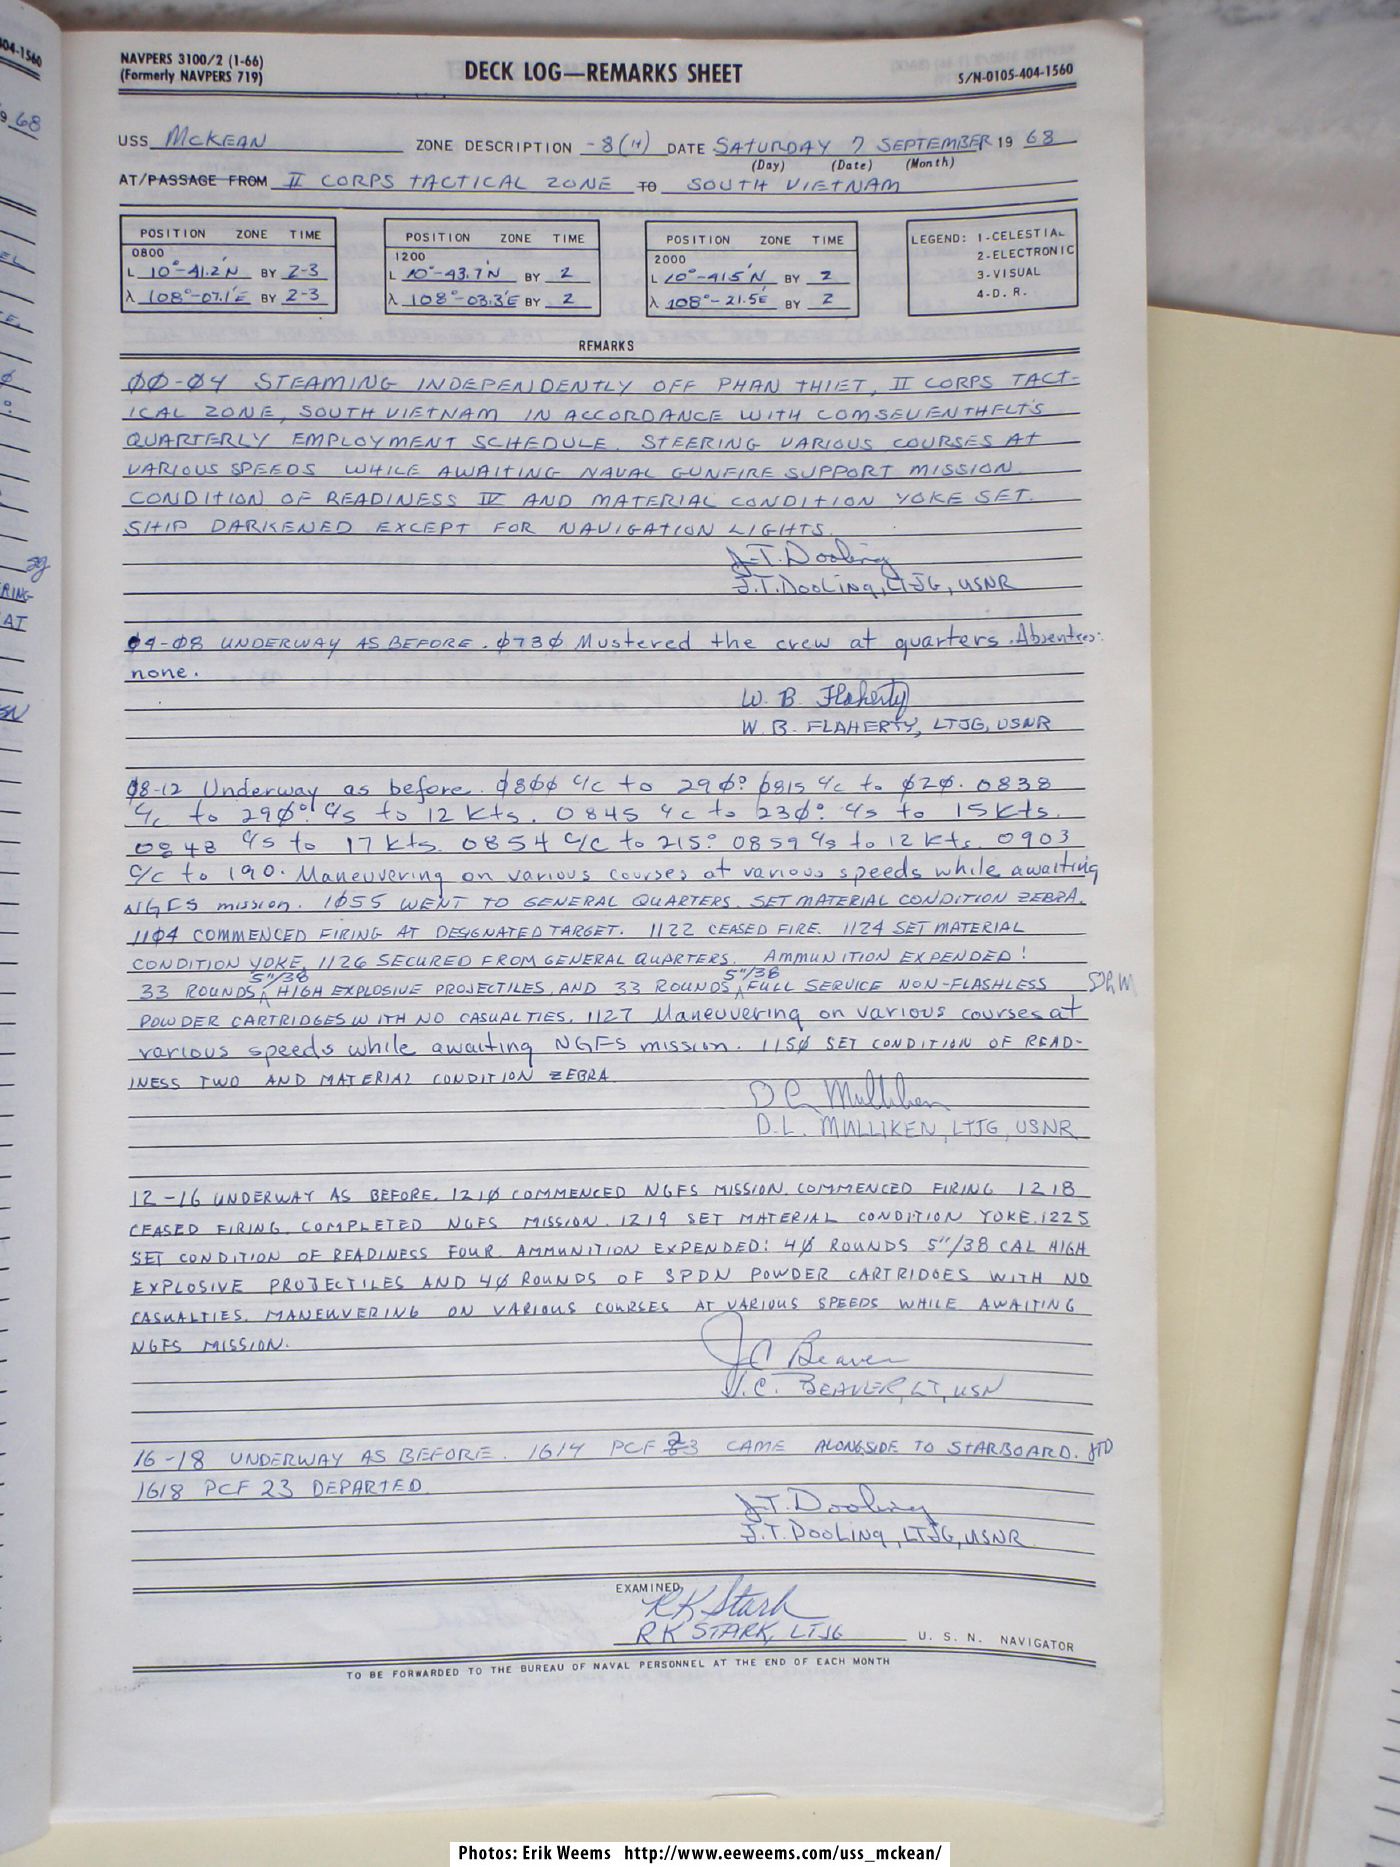 NAVPERS 3100/2 (1-66)
(Formerly NAVPERS 719)
DECK LOG—REMARKS SHEET
S/N-0105-404-1560
USS McKEAN ZONE DESCRIPTION -8(H) DATE SATURDAY 7 SEPTEMBER 19 68
(Day) (Date) (Month)
AT/PASSAGE FROM II CORPS TACTICAL ZONE TO SOUTH VIETNAM
POSITION ZONE TIME
0800
L 10°-41.2'N BY 2-3
λ 108°-07.1'E BY 2-3
POSITION ZONE TIME
1200
L 10°-43.7'N BY 2
λ 108°-03.3'E BY 2
POSITION ZONE TIME
2000
L 10°-41.5'N BY 2
λ 108°-21.5E' BY 2
LEGEND: 1-CELESTIAL
2-ELECTRONIC
3-VISUAL
4-D. R.
REMARKS
ØØ-Ø4 STEAMING INDEPENDENTLY OFF PHAN THIET, II CORPS TACT-
ICAL ZONE, SOUTH VIETNAM IN ACCORDANCE WITH COMSEVENTHFLT'S
QUARTERLY EMPLOYMENT SCHEDULE. STEERING VARIOUS COURSES AT
VARIOUS SPEEDS WHILE AWAITING NAVAL GUNFIRE SUPPORT MISSION
CONDITION OF READINESS IV AND MATERIAL CONDITION YOKE SET.
SHIP DARKENED EXCEPT FOR NAVIGATION LIGHTS.
J.T. Dooling
J.T. DOOLING, LTJG, USNR
Ø4-Ø8 UNDERWAY AS BEFORE. Ø73Ø Mustered the crew at quarters. Absentees:
none.
W. B. Flaherty
W. B. FLAHERTY, LTJG, USNR
Ø8-12 Underway as before. Ø8ØØ c/c to 29Ø° Ø815 c/c to Ø2Ø. 0838
c/c to 29Ø° c/s to 12 kts. 0845 c/c to 23Ø° c/s to 15 kts.
0848 c/s to 17 kts. 0854 c/c to 215° 0859 c/s to 12 kts. 0903
c/c to 190. Maneuvering on various courses at various speeds while awaiting
NGFS mission. 1Ø55 WENT TO GENERAL QUARTERS. SET MATERIAL CONDITION ZEBRA.
11Ø4 COMMENCED FIRING AT DESIGNATED TARGET. 1122 CEASED FIRE. 1124 SET MATERIAL
CONDITION YOKE. 1126 SECURED FROM GENERAL QUARTERS. AMMUNITION EXPENDED:
5"/38 5"/38
33 ROUNDS ^ HIGH EXPLOSIVE PROJECTILES, AND 33 ROUNDS ^ FULL SERVICE NON-FLASHLESS
POWDER CARTRIDGES WITH NO CASUALTIES. 1127 Maneuvering on various courses at
various speeds while awaiting NGFS mission. 115Ø SET CONDITION OF READ-
INESS TWO AND MATERIAL CONDITION ZEBRA
D L Mulliken
D.L. MULLIKEN, LTJG, USNR
12-16 UNDERWAY AS BEFORE. 121Ø COMMENCED NGFS MISSION. COMMENCED FIRING 1218
CEASED FIRING. COMPLETED NGFS MISSION. 1219 SET MATERIAL CONDITION YOKE. 1225
SET CONDITION OF READINESS FOUR. AMMUNITION EXPENDED: 4Ø ROUNDS 5"/38 CAL HIGH
EXPLOSIVE PROJECTILES AND 4Ø ROUNDS OF SPDN POWDER CARTRIDGES WITH NO
CASUALTIES. MANEUVERING ON VARIOUS COURSES AT VARIOUS SPEEDS WHILE AWAITING
NGFS MISSION.
J C Beaver
J.C. BEAVER, LT, USN
16-18 UNDERWAY AS BEFORE. 1614 PCF 23 CAME ALONGSIDE TO STARBOARD. JTD
1618 PCF 23 DEPARTED.
J.T. Dooling
J.T. DOOLING, LTJG, USNR
EXAMINED
RK Stark
R K STARK, LTJG U. S. N. NAVIGATOR
TO BE FORWARDED TO THE BUREAU OF NAVAL PERSONNEL AT THE END OF EACH MONTH
Photos: Erik Weems http://www.eeweems.com/uss_mckean/